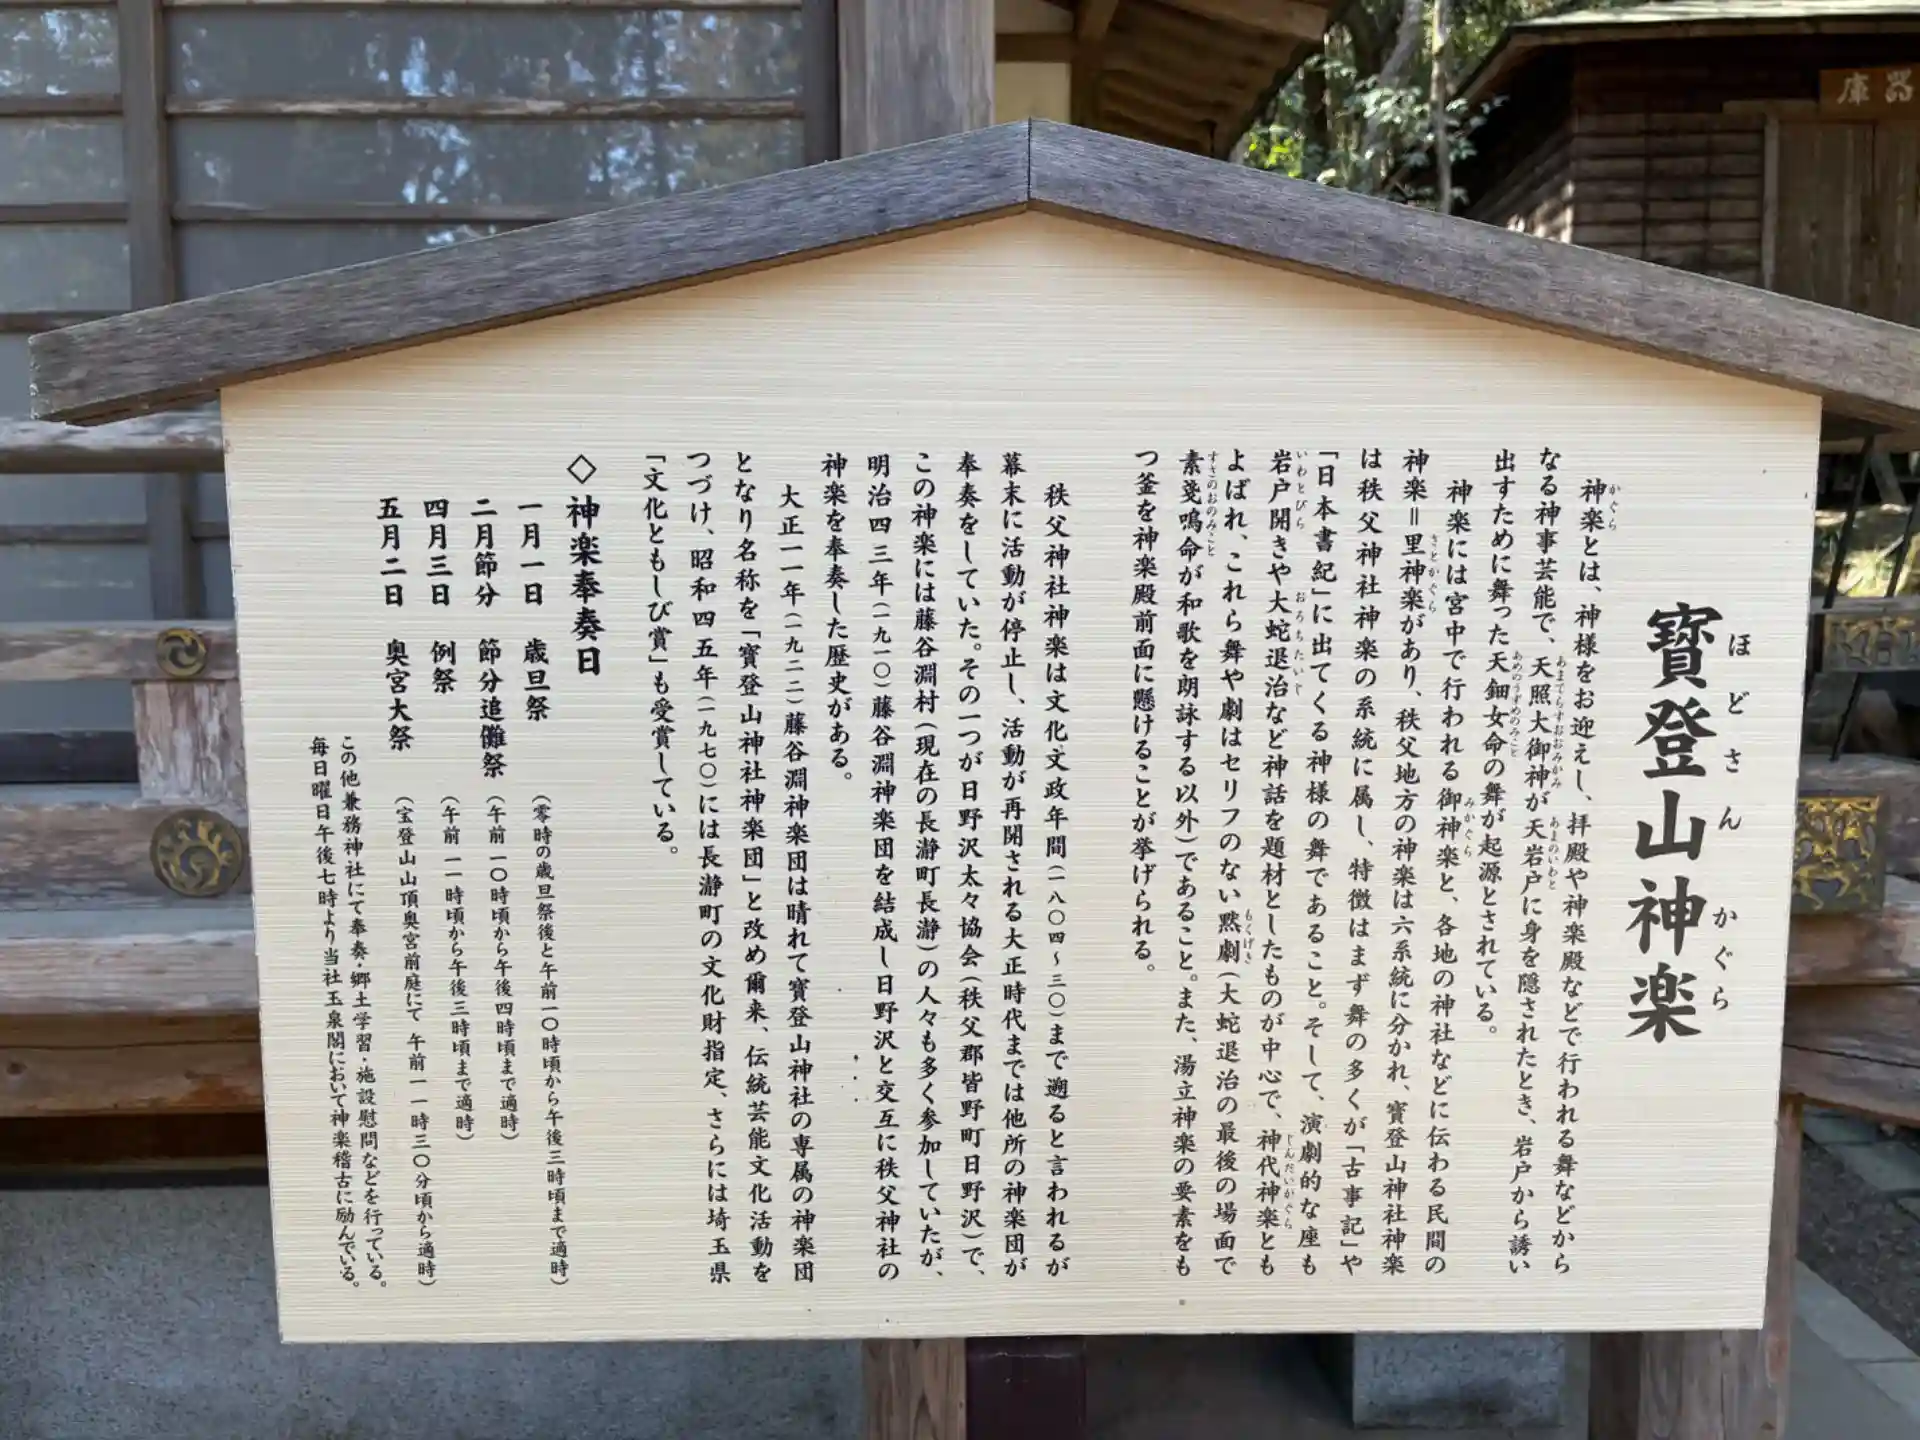 寶登山神楽
ほどさん かぐら
神楽とは、神様をお迎えし、拝殿や神楽殿などで行われる舞などから
かぐら
なる神事芸能で、天照大御神が天岩戸に身を隠されたとき、岩戸から誘い
あまてらすおおみかみ あまのいわと
出すために舞った天鈿女命の舞が起源とされている。
あめのうずめのみこと
神楽には宮中で行われる御神楽と、各地の神社などに伝わる民間の
みかぐら
神楽=里神楽があり、秩父地方の神楽は六系統に分かれ、寶登山神社神楽
さとかぐら
は秩父神社神楽の系統に属し、特徴はまず舞の多くが「古事記」や
「日本書紀」に出てくる神様の舞であること。そして、演劇的な座も
岩戸開きや大蛇退治など神話を題材としたものが中心で、神代神楽とも
いわとびら おろちたいじ じんだいかぐら
よばれ、これら舞や劇はセリフのない黙劇(大蛇退治の最後の場面で
もくげき
素戔嗚命が和歌を朗詠する以外)であること。また、湯立神楽の要素をも
すさのおのみこと
つ釜を神楽殿前面に懸けることが挙げられる。
秩父神社神楽は文化文政年間(一八〇四~三〇)まで遡ると言われるが
幕末に活動が停止し、活動が再開される大正時代までは他所の神楽団が
奉奏をしていた。その一つが日野沢太々協会(秩父郡皆野町日野沢)で、
この神楽には藤谷淵村(現在の長瀞町長瀞)の人々も多く参加していたが、
明治四三年(一九一〇)藤谷淵神楽団を結成し日野沢と交互に秩父神社の
神楽を奉奏した歴史がある。
大正一一年(一九二二)藤谷淵神楽団は晴れて寶登山神社の専属の神楽団
となり名称を「寶登山神社神楽団」と改め爾来、伝統芸能文化活動を
つづけ、昭和四五年(一九七〇)には長瀞町の文化財指定、さらには埼玉県
「文化ともしび賞」も受賞している。
◇神楽奉奏日
一月一日 歳旦祭 (零時の歳旦祭後と午前一〇時頃から午後三時頃まで適時)
二月節分 節分追儺祭 (午前一〇時頃から午後四時頃まで適時)
四月三日 例祭 (午前一一時頃から午後三時頃まで適時)
五月二日 奥宮大祭 (宝登山山頂奥宮前庭にて 午前一一時三〇分頃から適時)
この他兼務神社にて奉奏・郷土学習・施設慰問などを行っている。
毎日曜日午後七時より当社玉泉閣において神楽稽古に励んでいる。
器庫